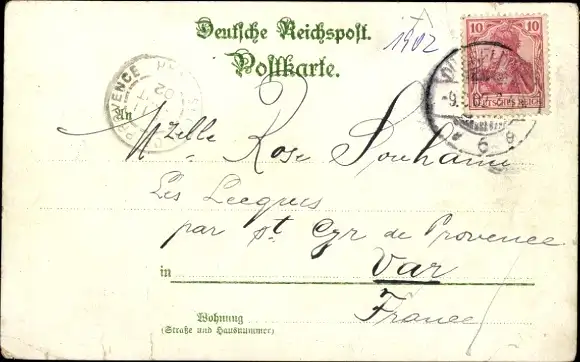 Deutsche Reichspost.
1902
Postkarte.
10 10
DEUTSCHES REICH
An
Mzelle Rose
Les Lecques
par St. Cyr de Provence
in Var
France
Wohnung
(Straße und Hausnummer)